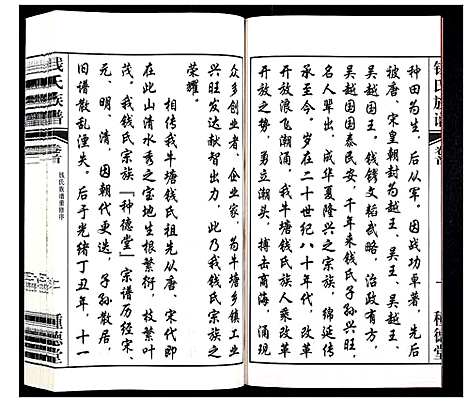 种田为生。后从军。因战功卓著，先后
被唐、宋皇朝封为越王、吴王、吴越王、
吴越国王。钱镠文韬武略，治政有方，
吴越国国泰民安，千年来钱氏子孙兴旺，
名人辈出，成华夏隆兴之宗族，绵延传
承至今。岁在二十世纪八十年代，改革
开放浪飞潮涌，我牛塘钱氏族人乘改革
开放之势，勇立潮头，搏击商海，涌现
众多创业者、企业家，为牛塘乡镇工业
兴旺发达献智出力，此乃我钱氏宗族之
荣耀。
相传我牛塘钱氏祖先从唐、宋代即
在此山清水秀之宝地生根繁衍，枝繁叶
茂。我钱氏宗族「种德堂」宗谱历经宋、
元、明、清，因朝代更迭，子孙散居，
旧谱散乱湮失。后于光绪丁丑年，十一
钱氏族谱
卷首
钱氏族谱重修序
种德堂